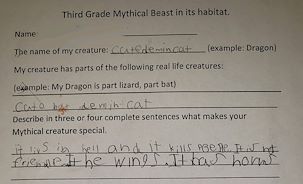 Third Grade Mythical Beast in its habitat.
Name
The name of my creature: catedemincat (example: Dragon)
My creature has parts of the following real life creatures:
(example: My Dragon is part lizard, part bat)
cat demin cat
Describe in three or four complete sentences what makes your
Mythical creature special.
It livs in hell and it kills It is not
he wings. It has horns